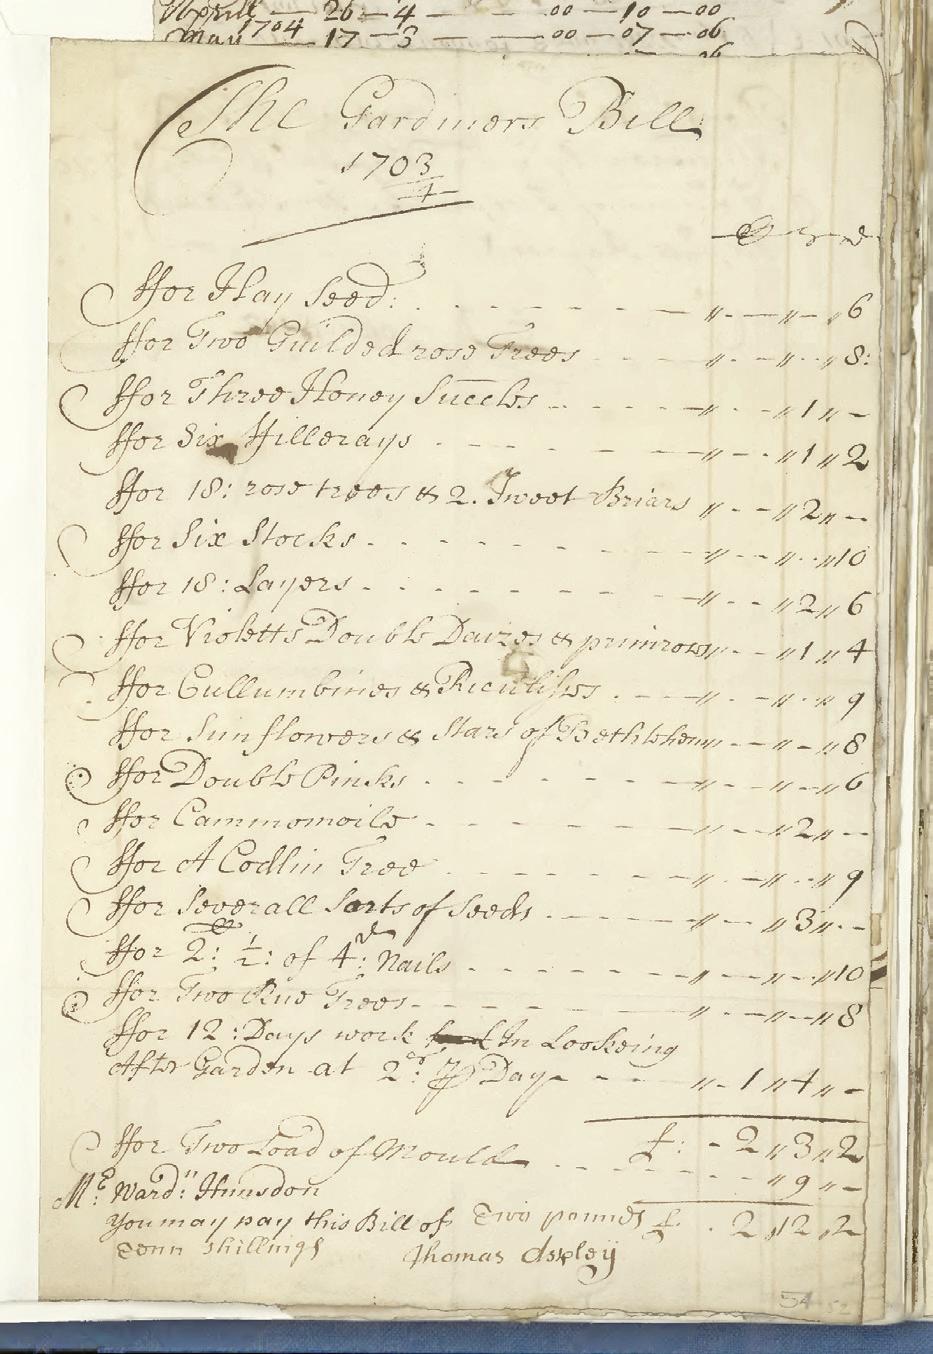 Aprill — 26 — 4 — — 00 — 10 — 00
1704
May — 17 — 3 — — 00 — 07 — 06
The Gardiners Bill
1703
4
ffor Hay Seed: . . . - - - - - — „ - — „ - „ 6
ffor Two Guilded rose Trees - - - — „ - — „ - „ 8:
ffor Three Honey Succles - - - - — „ - - „ 1 „ -
ffor Six Fillerays - - - - - — „ - - „ 1 „ 2
ffor 18: rose trees & 2. Sweet Briars „ - - „ 2 „ -
ffor Six Stocks - - - - - - — „ - - „ - „ 10
ffor 18: Layers - - - - - - — „ - - „ 2 „ 6
ffor Violetts Double Daizes & primroses „ - - „ 1 „ 4
ffor Cullumbines & - - — „ - - „ - „ 9
ffor Sunflowers & Stars of Bethlehem „ - - „ - „ 8
ffor Double Pinks - - - - - — „ - - „ - „ 6
ffor Cammomoile - - - - - — „ - - „ 2 „ -
ffor A Codlin Tree - - - - - — „ - — „ - „ 9
ffor Severall Sorts of Seeds - - - — „ - — „ 3 „ -
ffor 2: 1/2: of 4:d Nails - - - - - — „ - — „ - „ 10
ffor Two Rue Trees - - - - - — „ - — „ - „ 8
ffor 12: Days work In Lookeing
After Garden at 2:s p Day - - - „ - 1 „ 4 „ -
£: - 2 „ 3 „ 2
ffor Two Load of Mould - - - - - - „ 9 „ -
Mr: Ward: Hunsdon
You may pay this Bill of Two pounds £ . 2 „ 12 „ 2
Tenn shillings Thomas
54 52